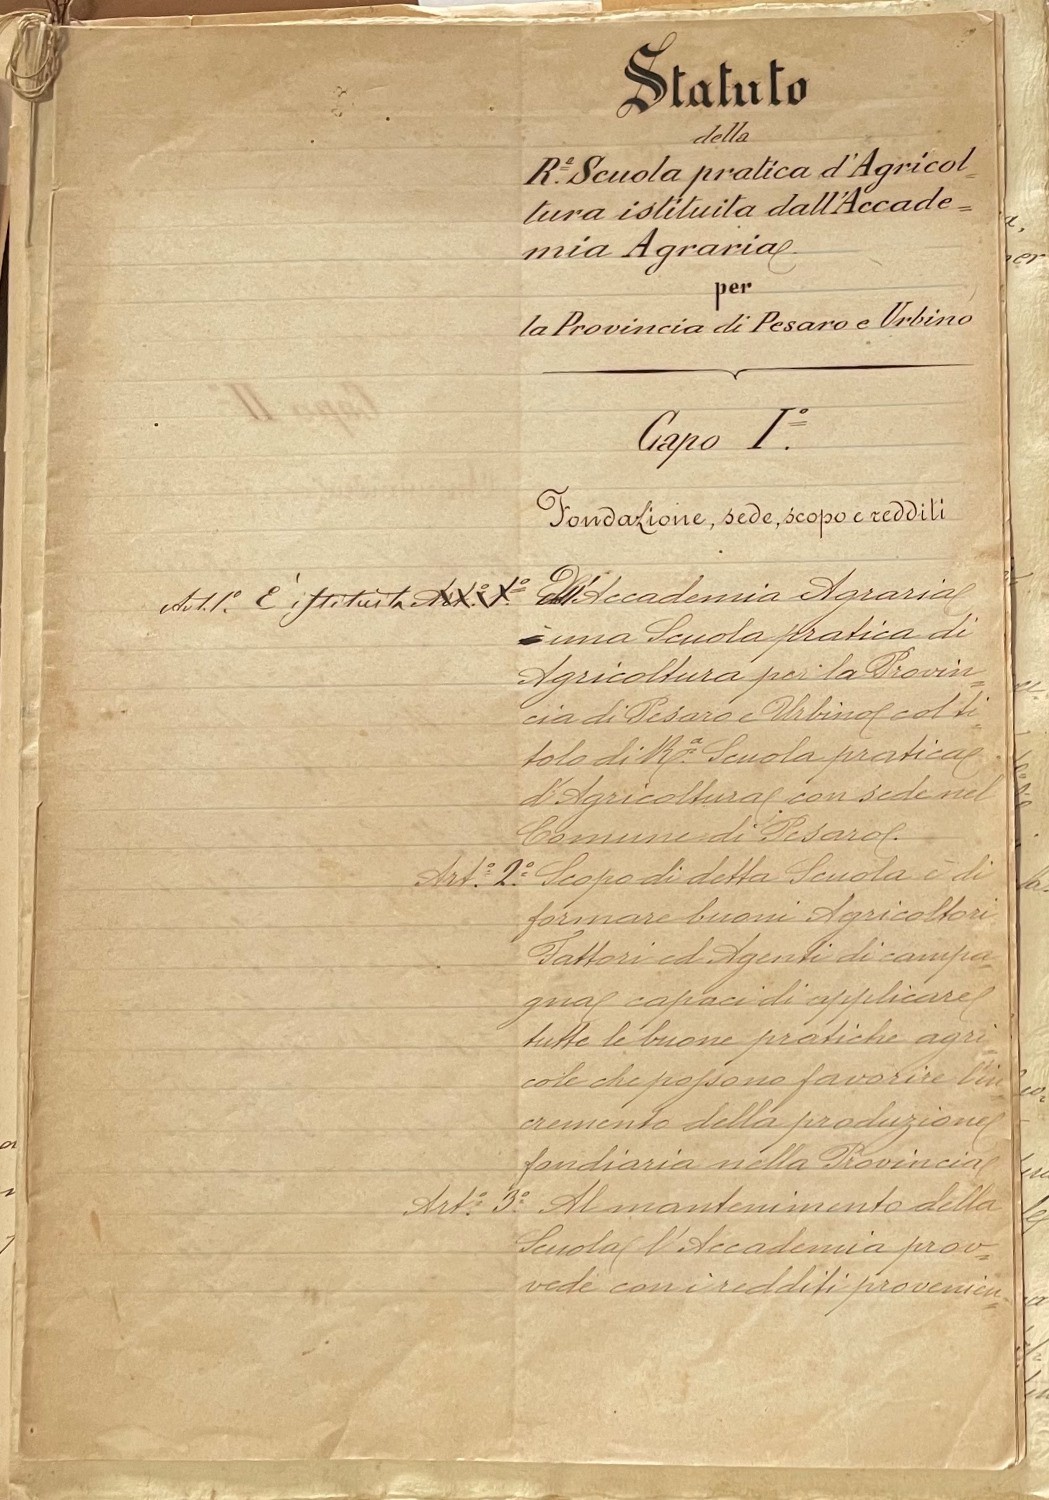 Statuto
della
R.ª Scuola pratica d'Agricol=
tura istituita dall'Accade=
mia Agraria
per
la Provincia di Pesaro e Urbino
Capo I.º
Fondazione, sede, scopo e redditi
Art. 1.º È istituita dall'Accademia Agraria
una Scuola pratica di
Agricoltura per la Provin=
cia di Pesaro e Urbino col ti=
tolo di R.ª Scuola pratica
d'Agricoltura con sede nel
Comune di Pesaro.
Art.º 2.º Scopo di detta Scuola è di
formare buoni Agricoltori
Fattori ed Agenti di campa=
gna capaci di applicare
tutte le buone pratiche agri=
cole che possono favorire l'in
cremento della produzione
fondiaria nella Provincia
Art.º 3.º Al mantenimento della
Scuola l'Accademia prov=
vede con i redditi provenien=